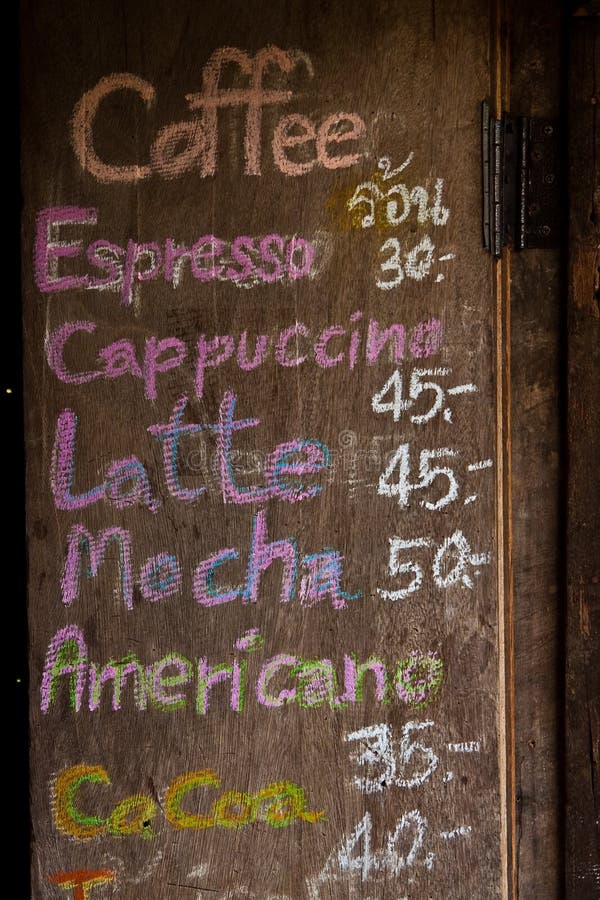 Coffee
ร้อน
Espresso 30.-
Cappuccino
45.-
Latte 45.-
Mocha 50.-
Americano
35.-
CaCoa
40.-